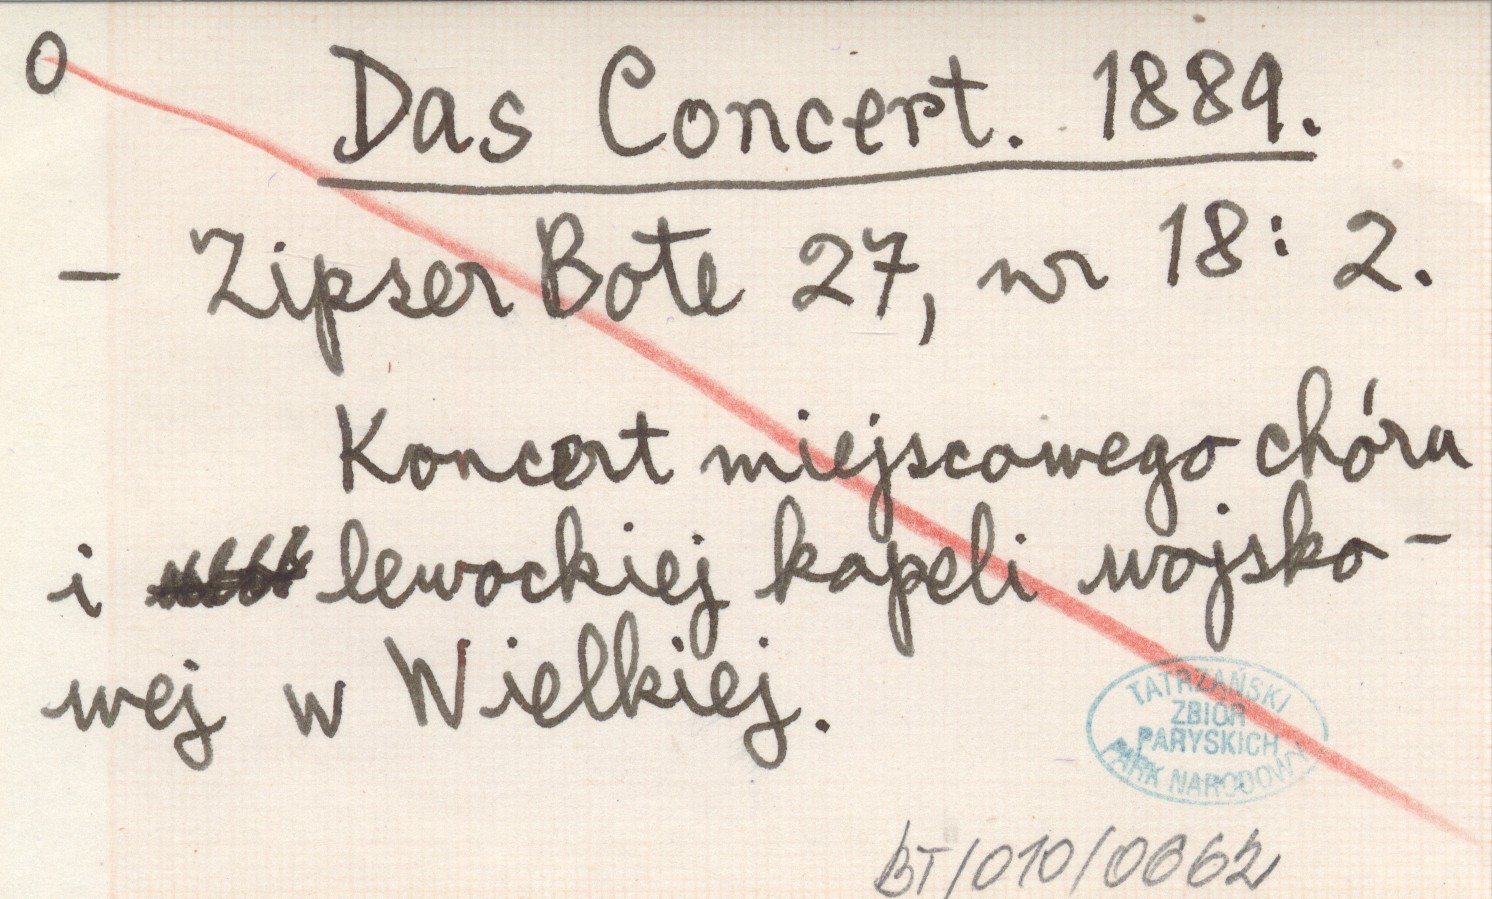 0
Das Concert. 1889.
- Zipser Bote 27, nr 18: 2.
Koncert miejscowego chóru
i lewockiej kapeli wojsko-
wej w Wielkiej.
TATRZAŃSKI
ZBIÓR
PARYSKICH
PARK NARODOWY
BT/010/0662